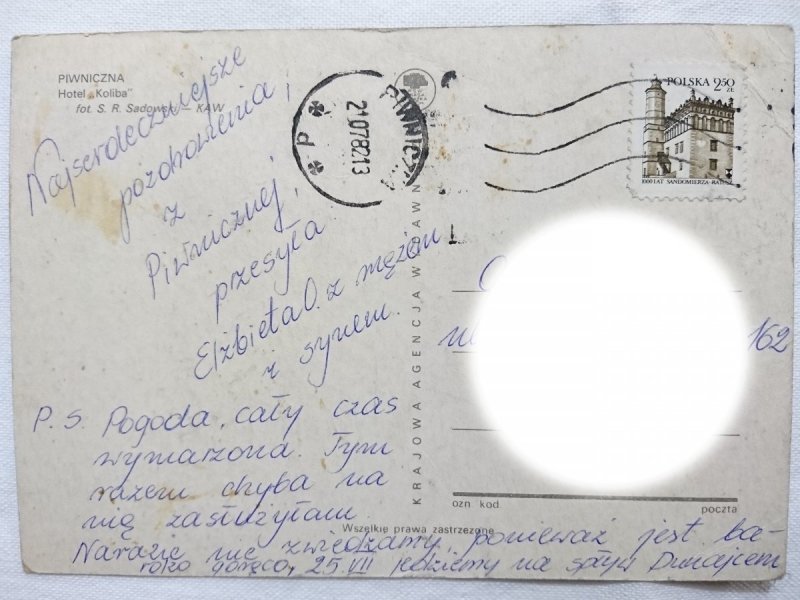 PIWNICZNA
Hotel „Koliba”
fot. S. R. Sadowski — KAW
Najserdeczniejsze
pozdrowienia
z
Piwnicznej,
przesyła
Elżbieta O. z mężem
i synem.
P. S. Pogoda, cały czas
wymarzona. Tym
razem chyba na
nią zasłużyłam.
Narazie nie zwiedzamy, ponieważ jest ba-
rdzo gorąco, 25.VII jedziemy na spływ Dunajcem
KRAJOWA AGENCJA WYDAWN
Wszelkie prawa zastrzeżone
P
21.07.82.13
PIWNICZNA
POLSKA 2,50
ZŁ
1000 LAT SANDOMIERZA-RATUSZ
ul
162
ozn. kod
poczta